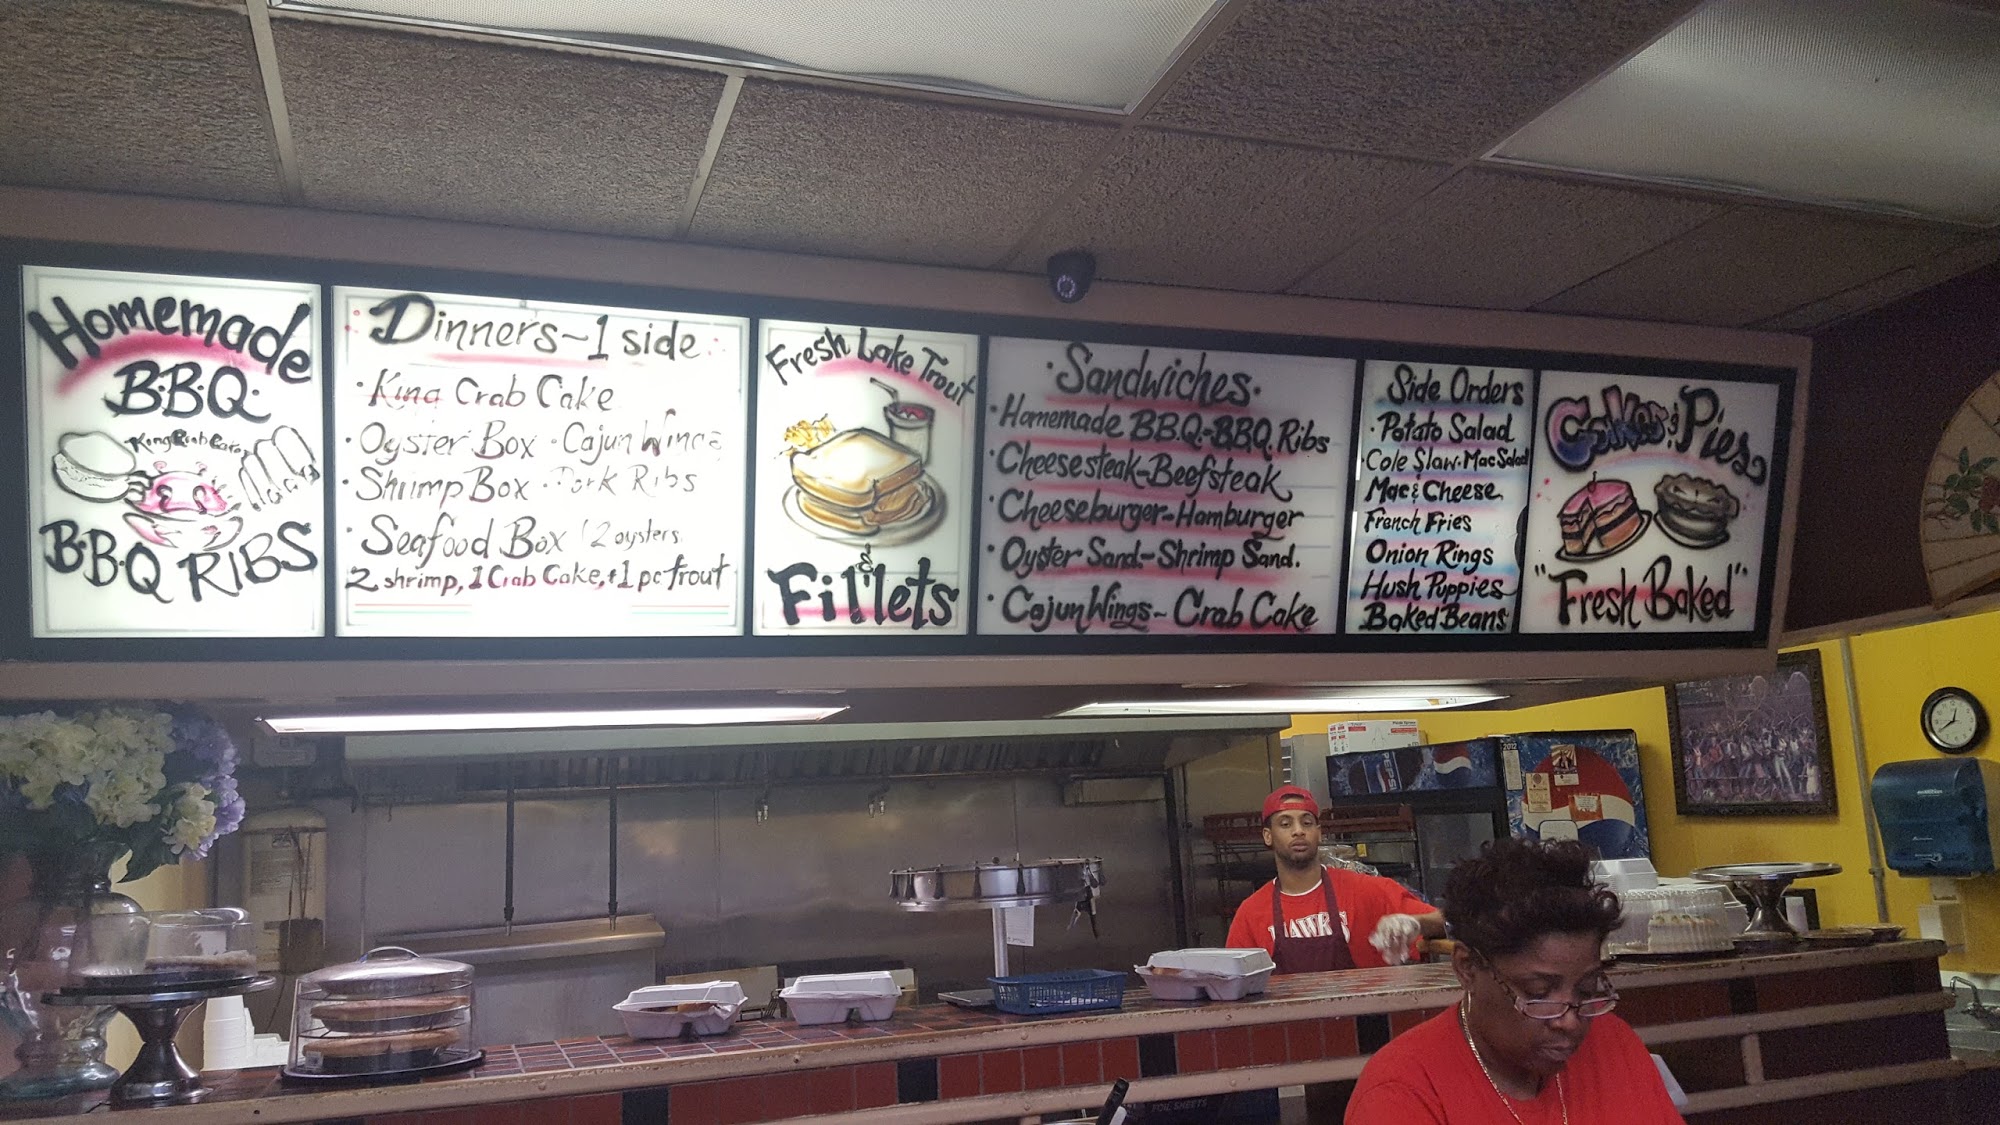 Homemade
B.B.Q.
King Crab Cake
B.B.Q RIBS
Dinners~1 side
· King Crab Cake
· Oyster Box · Cajun Wings
· Shrimp Box · Pork Ribs
· Seafood Box (2 oysters,
2 shrimp, 1 Crab Cake, + 1 pc trout
Fresh Lake Trout
&
Fillets
· Sandwiches ·
· Homemade B.B.Q.-BBQ. Ribs
· Cheesesteak-Beefsteak
· Cheeseburger-Hamburger
· Oyster Sand.-Shrimp Sand.
· Cajun Wings~ Crab Cake
Side Orders
· Potato Salad
· Cole Slaw · Mac Salad
Mac & Cheese
French Fries
Onion Rings
Hush Puppies
Baked Beans
Cakes & Pies
"Fresh Baked"
PEPSI
HAWKS
FOIL SHEETS